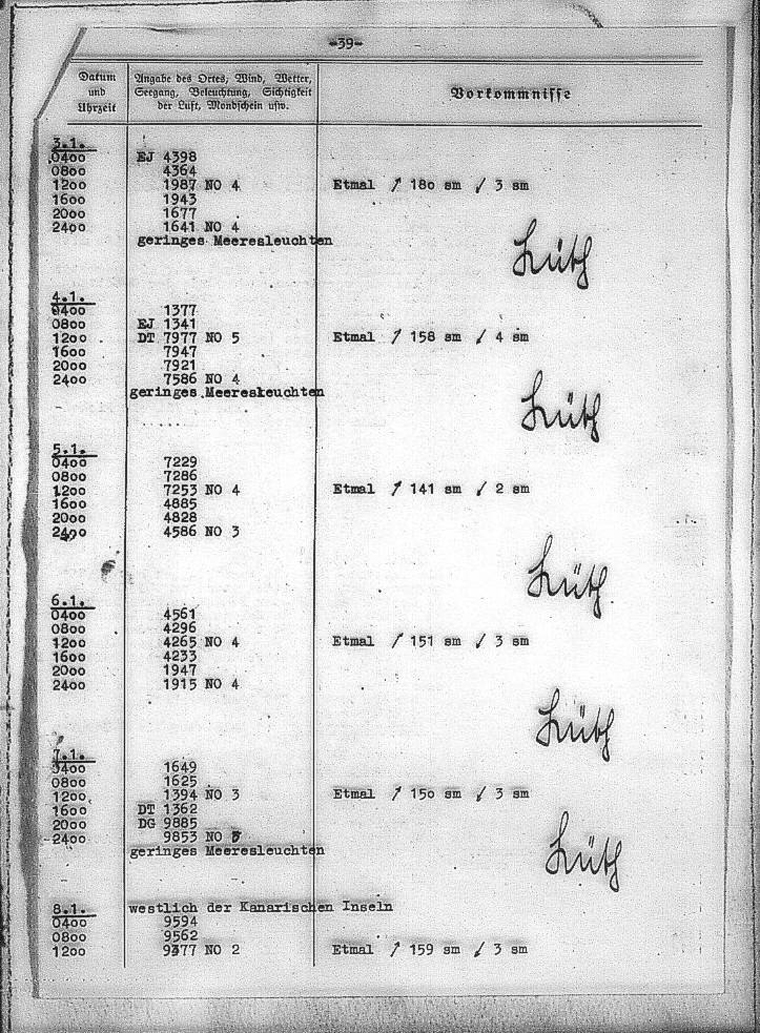 -39-
Datum und Uhrzeit
Angabe des Ortes, Wind, Wetter, Seegang, Beleuchtung, Sichtigkeit der Luft, Mondschein usw.
Vorkommnisse
3.1.
0400 EJ 4398
0800 4364
1200 1987 NO 4 Etmal ↗ 180 sm ↙ 3 sm
1600 1943
2000 1677
2400 1641 NO 4
geringes Meeresleuchten
Lüth
4.1.
0400 1377
0800 EJ 1341
1200 DT 7977 NO 5 Etmal ↗ 158 sm ↙ 4 sm
1600 7947
2000 7921
2400 7586 NO 4
geringes Meereskeuchten
Lüth
5.1.
0400 7229
0800 7286
1200 7253 NO 4 Etmal ↗ 141 sm ↙ 2 sm
1600 4885
2000 4828
2400 4586 NO 3
Lüth
6.1.
0400 4561
0800 4296
1200 4265 NO 4 Etmal ↗ 151 sm ↙ 3 sm
1600 4233
2000 1947
2400 1915 NO 4
Lüth
7.1.
0400 1649
0800 1625
1200 1394 NO 3 Etmal ↗ 150 sm ↙ 3 sm
1600 DT 1362
2000 DG 9885
2400 9853 NO
geringes Meeresleuchten
Lüth
8.1. westlich der Kanarischen Inseln
0400 9594
0800 9562
1200 9377 NO 2 Etmal ↗ 159 sm ↙ 3 sm